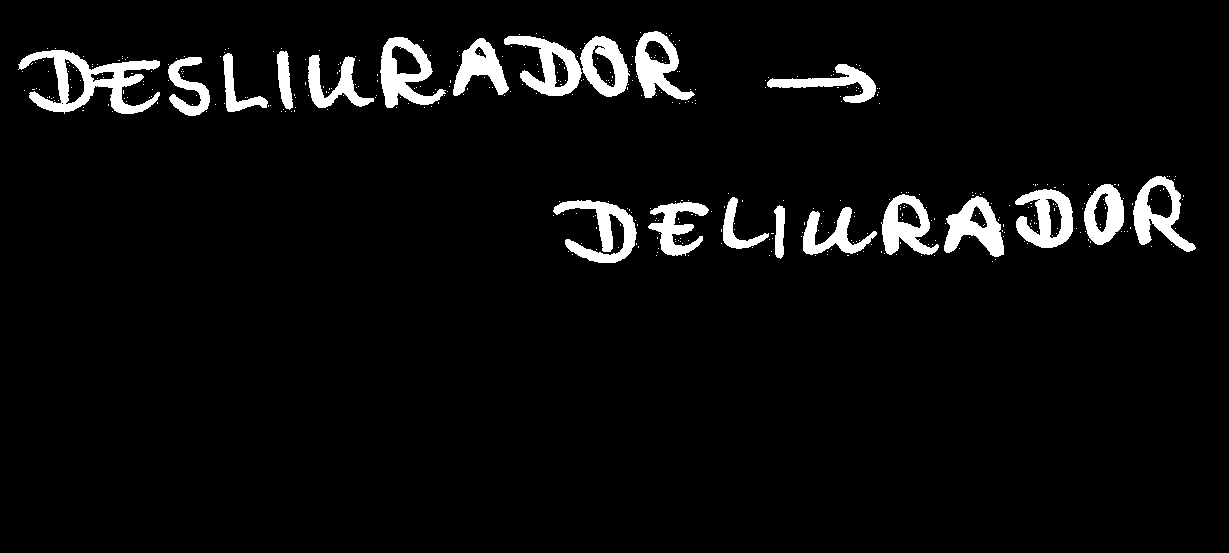 DESLIURADOR →
DELIURADOR